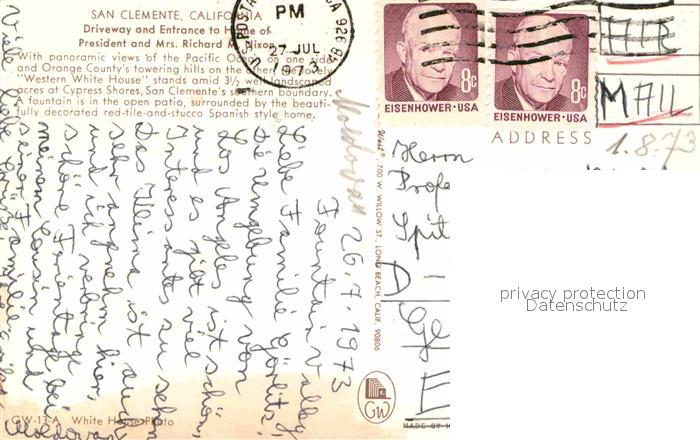 SAN CLEMENTE, CALIFORNIA
Driveway and Entrance to Home of
President and Mrs. Richard M. Nixon
With panoramic views of the Pacific Ocean on one side
and Orange County's towering hills on the other, the lovely
"Western White House" stands amid 3½ well landscaped
acres at Cypress Shores, San Clemente's southern boundary.
A fountain is in the open patio, surrounded by the beauti-
fully decorated red-tile-and-stucco Spanish style home.
PM
27 JUL
197
8c
EISENHOWER·USA
8c
EISENHOWER·USA
AIR
MAIL
ADDRESS
1.8.73
Moldovan
Fountain Valley
26.7.1973
Liebe Familie
die Umgebung von
Los Angeles ist schön,
und es gibt viel
Interessantes zu sehen
Das Klima ist auch
sehr angenehm hier,
und ich verbringe
schöne Ferientage bei
meinem Cousin und
Familie
Viele liebe Grüsse
Moldovan
West 700 W. WILLOW ST., LONG BEACH, CALIF. 90806
Herrn
Profe
Spit
D-
GW
MADE BY
GW-13-A White House Photo
privacy protection
Datenschutz